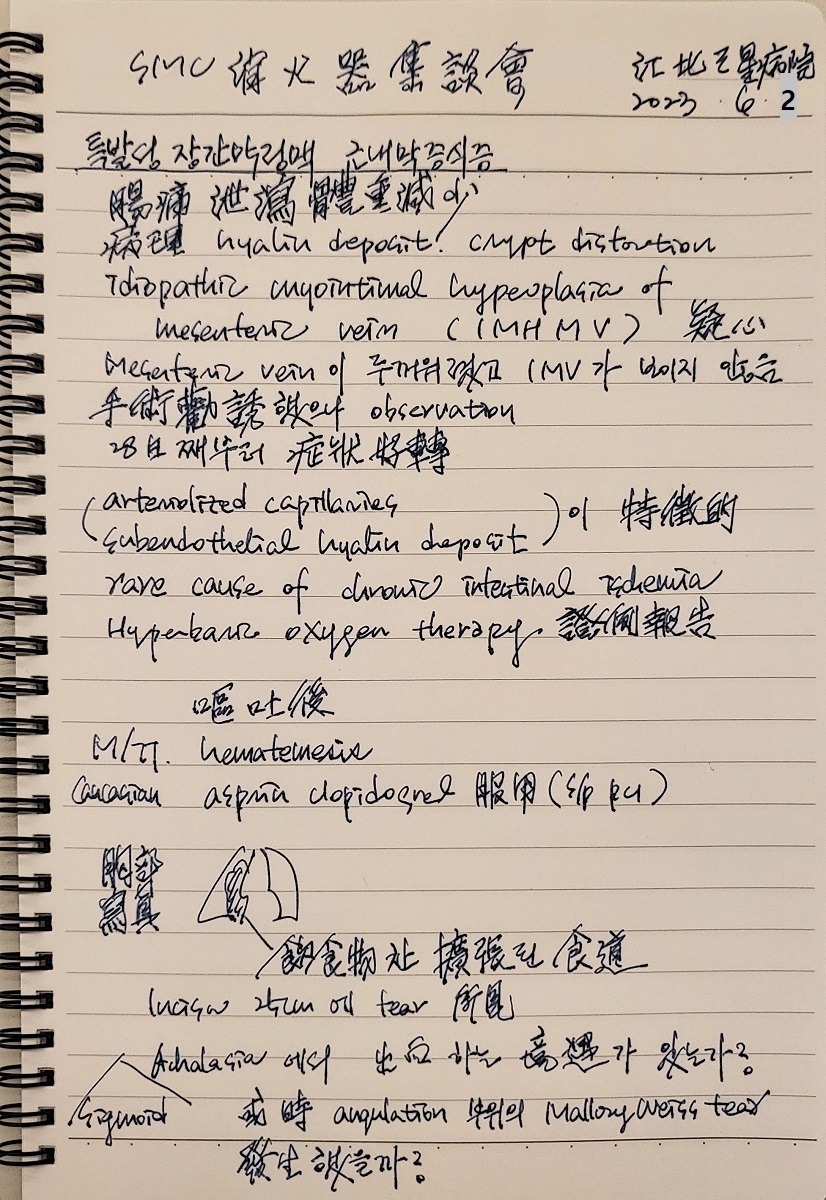 SMC 消火器集談會
江北三星病院
2023 . 6 . 2
특발성 장간막정맥 근내막증식증
腸痛 泄瀉 體重減少
病理 hyalin deposit. crypt distortion
Idiopathic myointimal hyperplasia of
mesenteric vein (IMHMV) 疑心
Mesenteric vein이 두꺼워졌고 IMV가 보이지 않음
手術勸誘했으나 observation
28日째부터 症狀好轉
(arteriolized capillaries
subendothelial hyalin deposit)이 特徵的
rare cause of chronic intestinal ischemia
Hyperbaric oxygen therapy. 證例報告
嘔吐後
M/77. hematemesis
Caucasian aspirin clopidogrel 服用 (s/p PCI)
胸部
寫眞
飮食物 擴張된 食道
Incisor 25cm에 tear 所見
Achalasia에서 出血하는 境遇가 있는가?
Sigmoid 或時 angulation 부위의 Mallory Weiss tear
發生했을까?